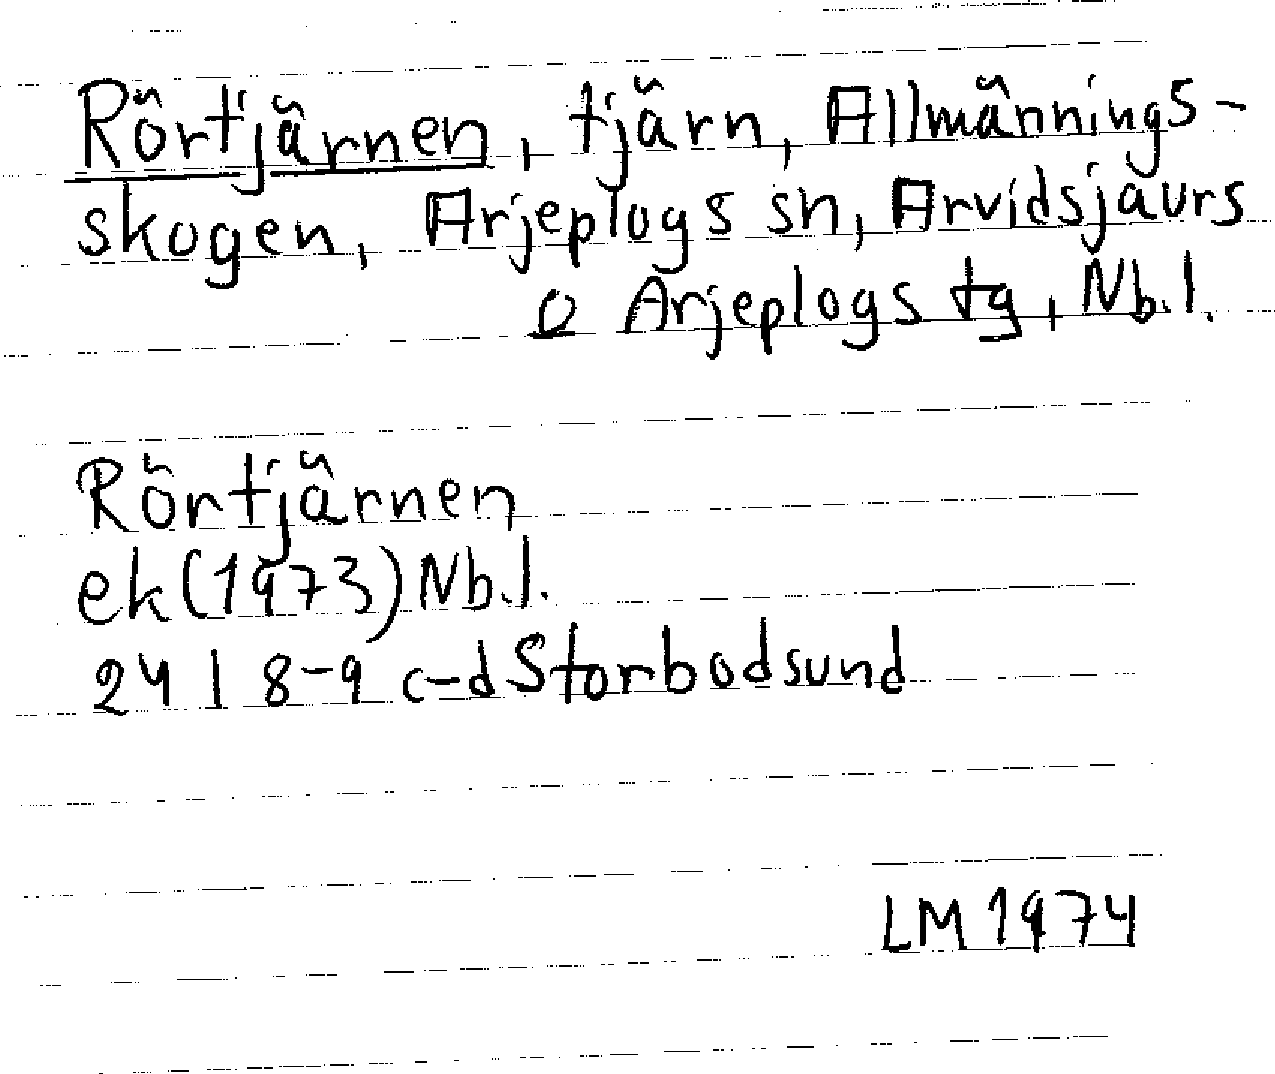 Rörtjärnen, tjärn, Allmännings-
skogen, Arjeplogs sn, Arvidsjaurs
o Arjeplogs tg, Nb.l.
Rörtjärnen
ek (1973) Nb.l.
24 I 8-9 c-d Storbodsund
LM 1974